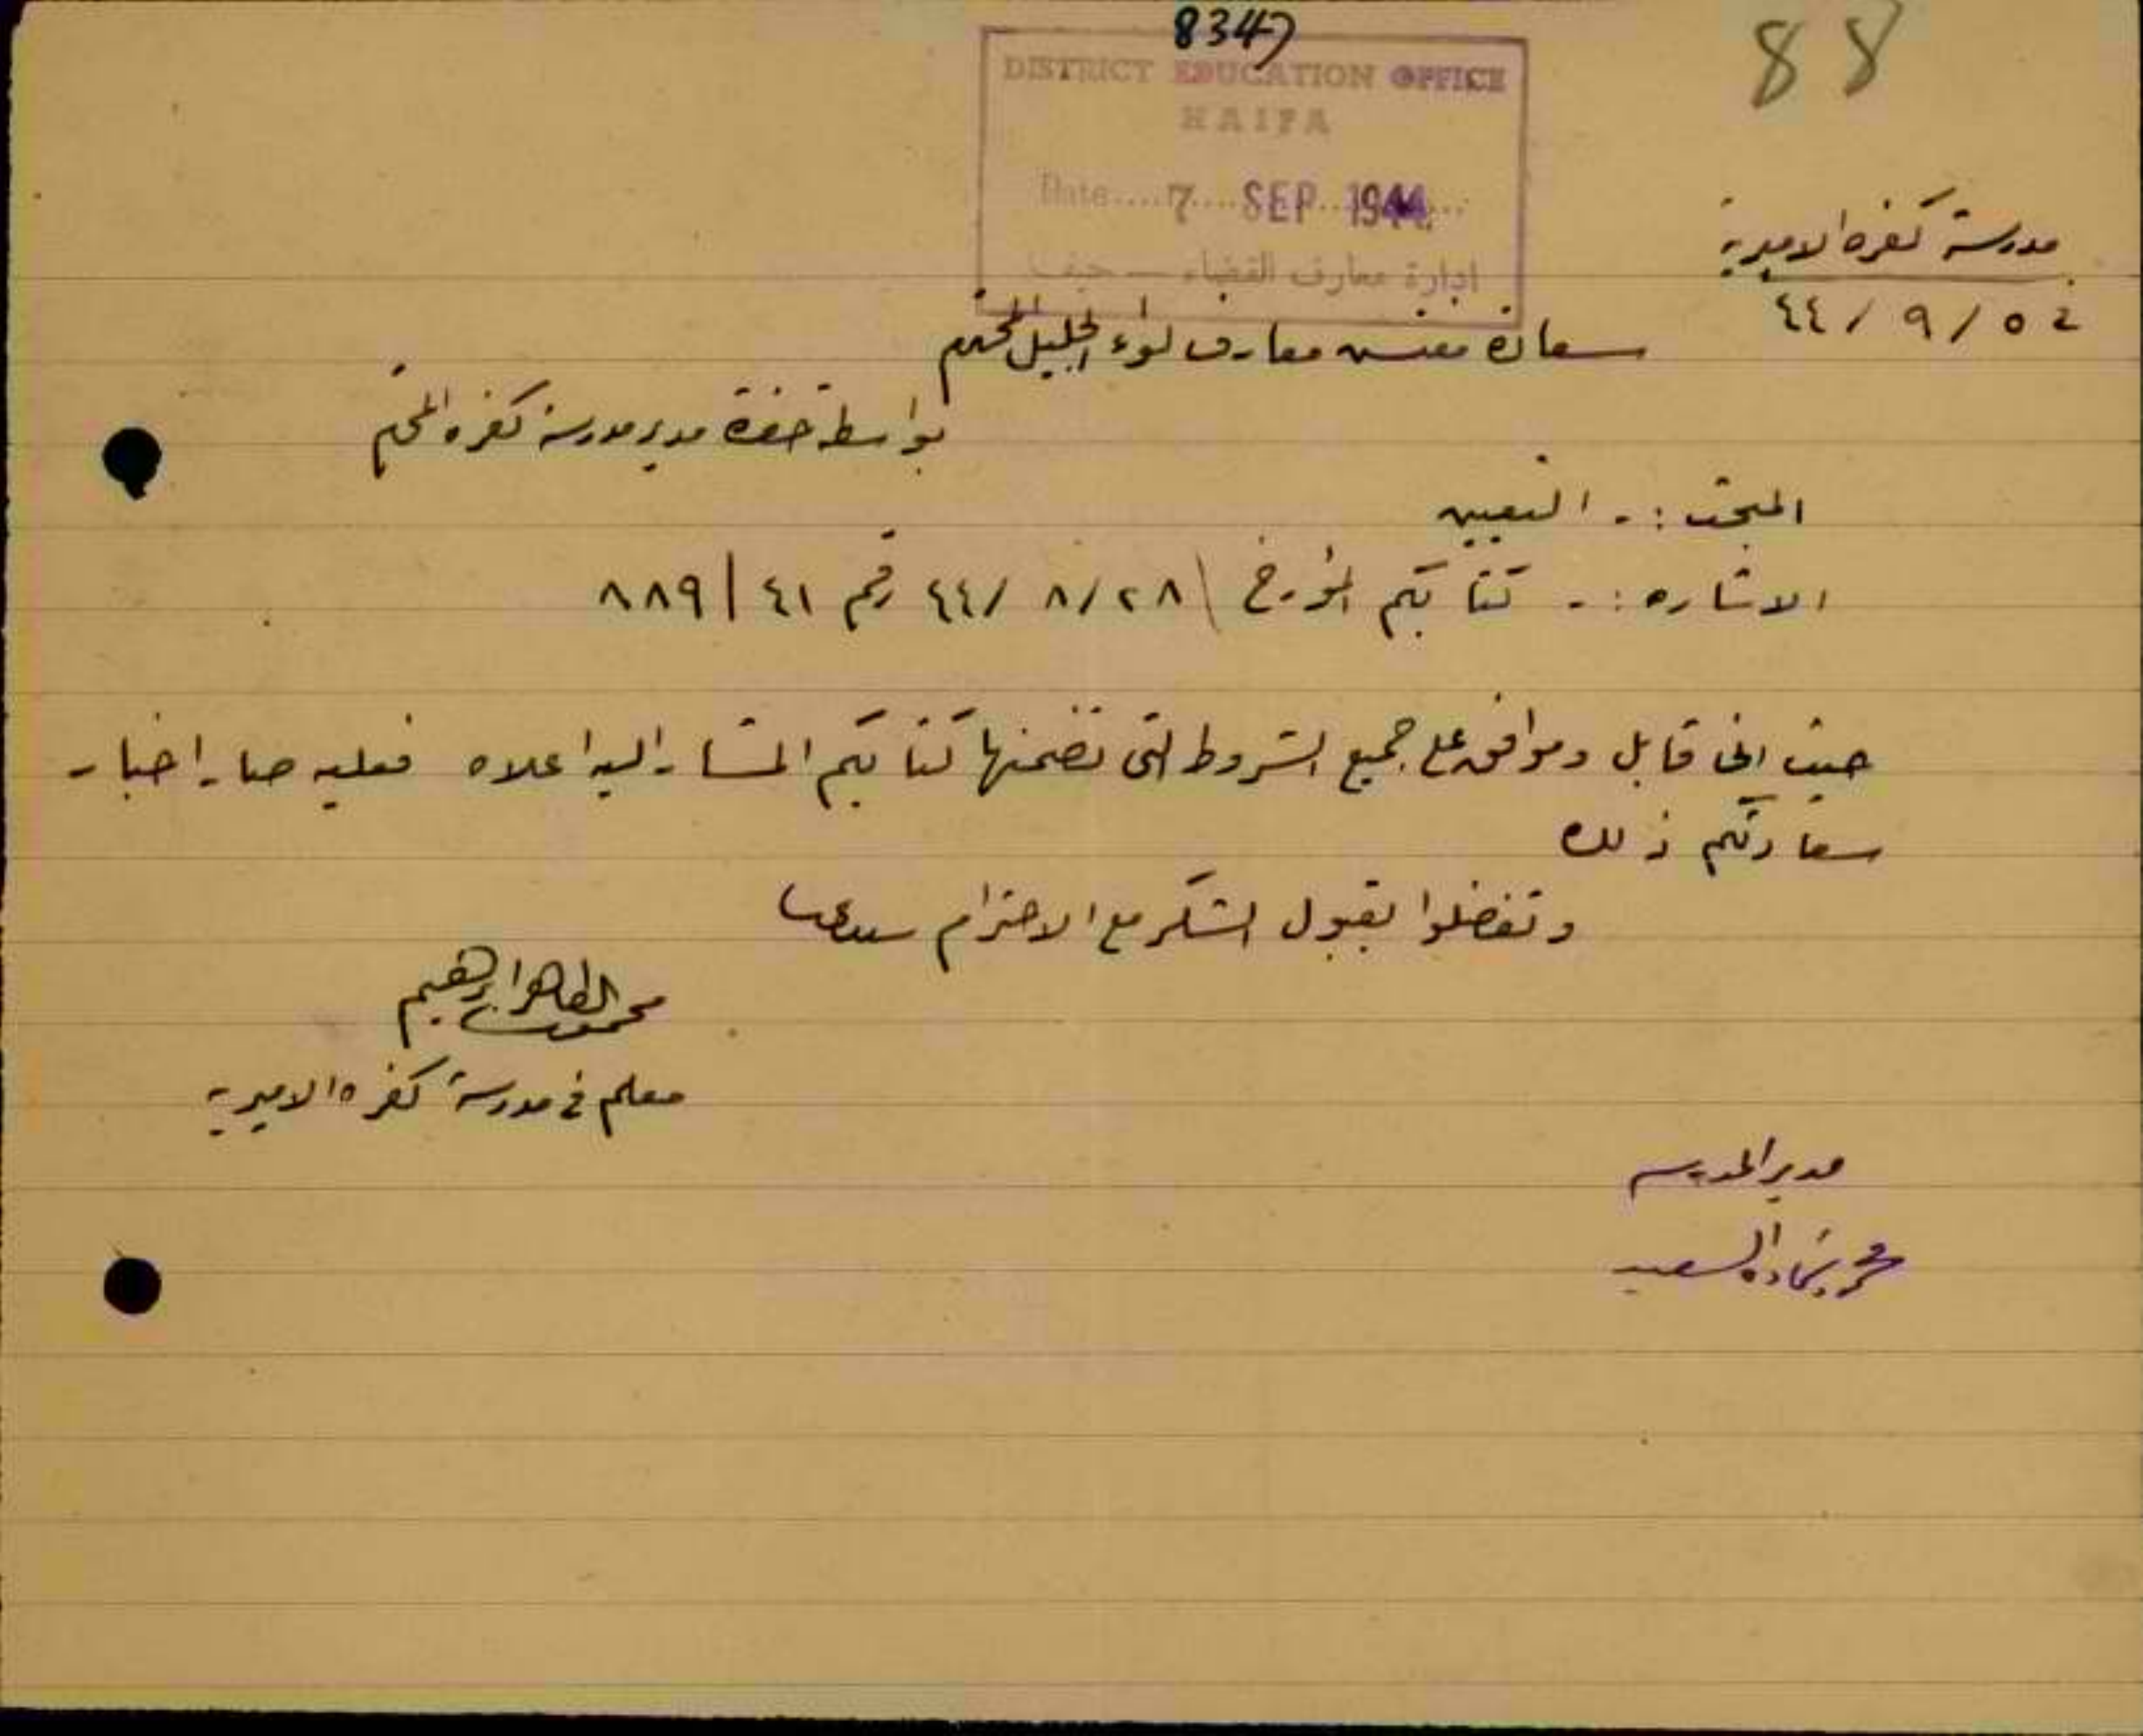 8347
88
DISTRICT EDUCATION OFFICE
HAIFA
Date.... 7 .... SEP. 1944 ...
ادارة معارف القضاء — حيفا
مدرسة كفره الاميرية
في ٥ / ٩ / ٤٤
سعادة مفتش معارف لواء الجليل المحترم
بواسطة حضرة مدير مدرسة كفره المحترم
المبحث :ـ التعيين
الاشاره :ـ كتابكم المؤرخ \ ٢٨/ ٨ /٤٤ رقم ٤١ | ٨٨٩
حيث اني قابل وموافق على جميع الشروط التي تضمنها كتابكم المشار اليه اعلاه فعليه صار اخبار
سعادتكم ذلك
وتفضلوا بقبول الشكر مع الاحترام سيدي
محمود الطاهر ابراهيم
معلم في مدرسة كفره الاميرية
مدير المدرسه
السعيد